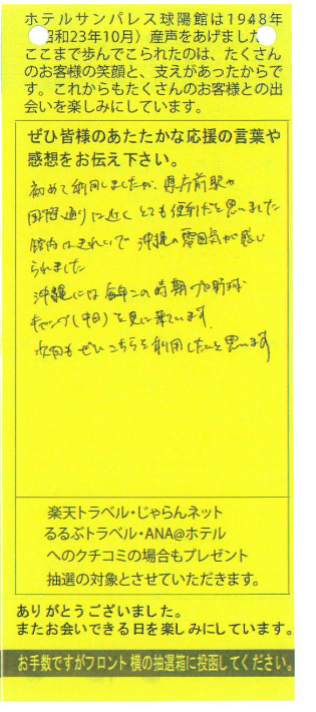 ホテルサンパレス球陽館は1948年
(昭和23年10月)産声をあげました
ここまで歩んでこられたのは、たくさん
のお客様の笑顔と、支えがあったからで
す。これからもたくさんのお客様との出
会いを楽しみにしています。
ぜひ皆様のあたたかな応援の言葉や
感想をお伝え下さい。
初めて利用しましたが、県庁前駅や
国際通りに近く とても便利だと思いました
館内はきれいで 沖縄の雰囲気が感じ
られました
沖縄には毎年この時期プロ野球
キャンプ(中日)を見に来ています。
次回もぜひこちらを利用したいと思います
楽天トラベル・じゃらんネット
るるぶトラベル・ANA@ホテル
へのクチコミの場合もプレゼント
抽選の対象とさせていただきます。
ありがとうございました。
またお会いできる日を楽しみにしています。
お手数ですがフロント横の抽選箱に投函してください。